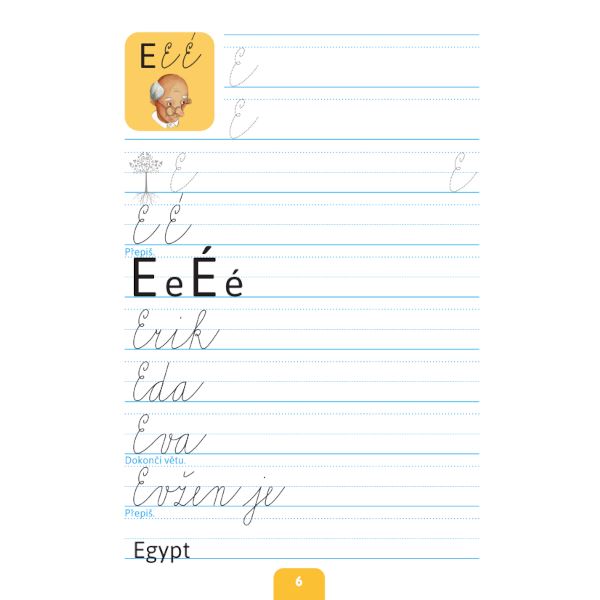 E E É
E
E
E E
E É
Přepiš.
E e É é
Erik
Eda
Eva
Dokonči větu.
Evžen je
Přepiš.
Egypt
6